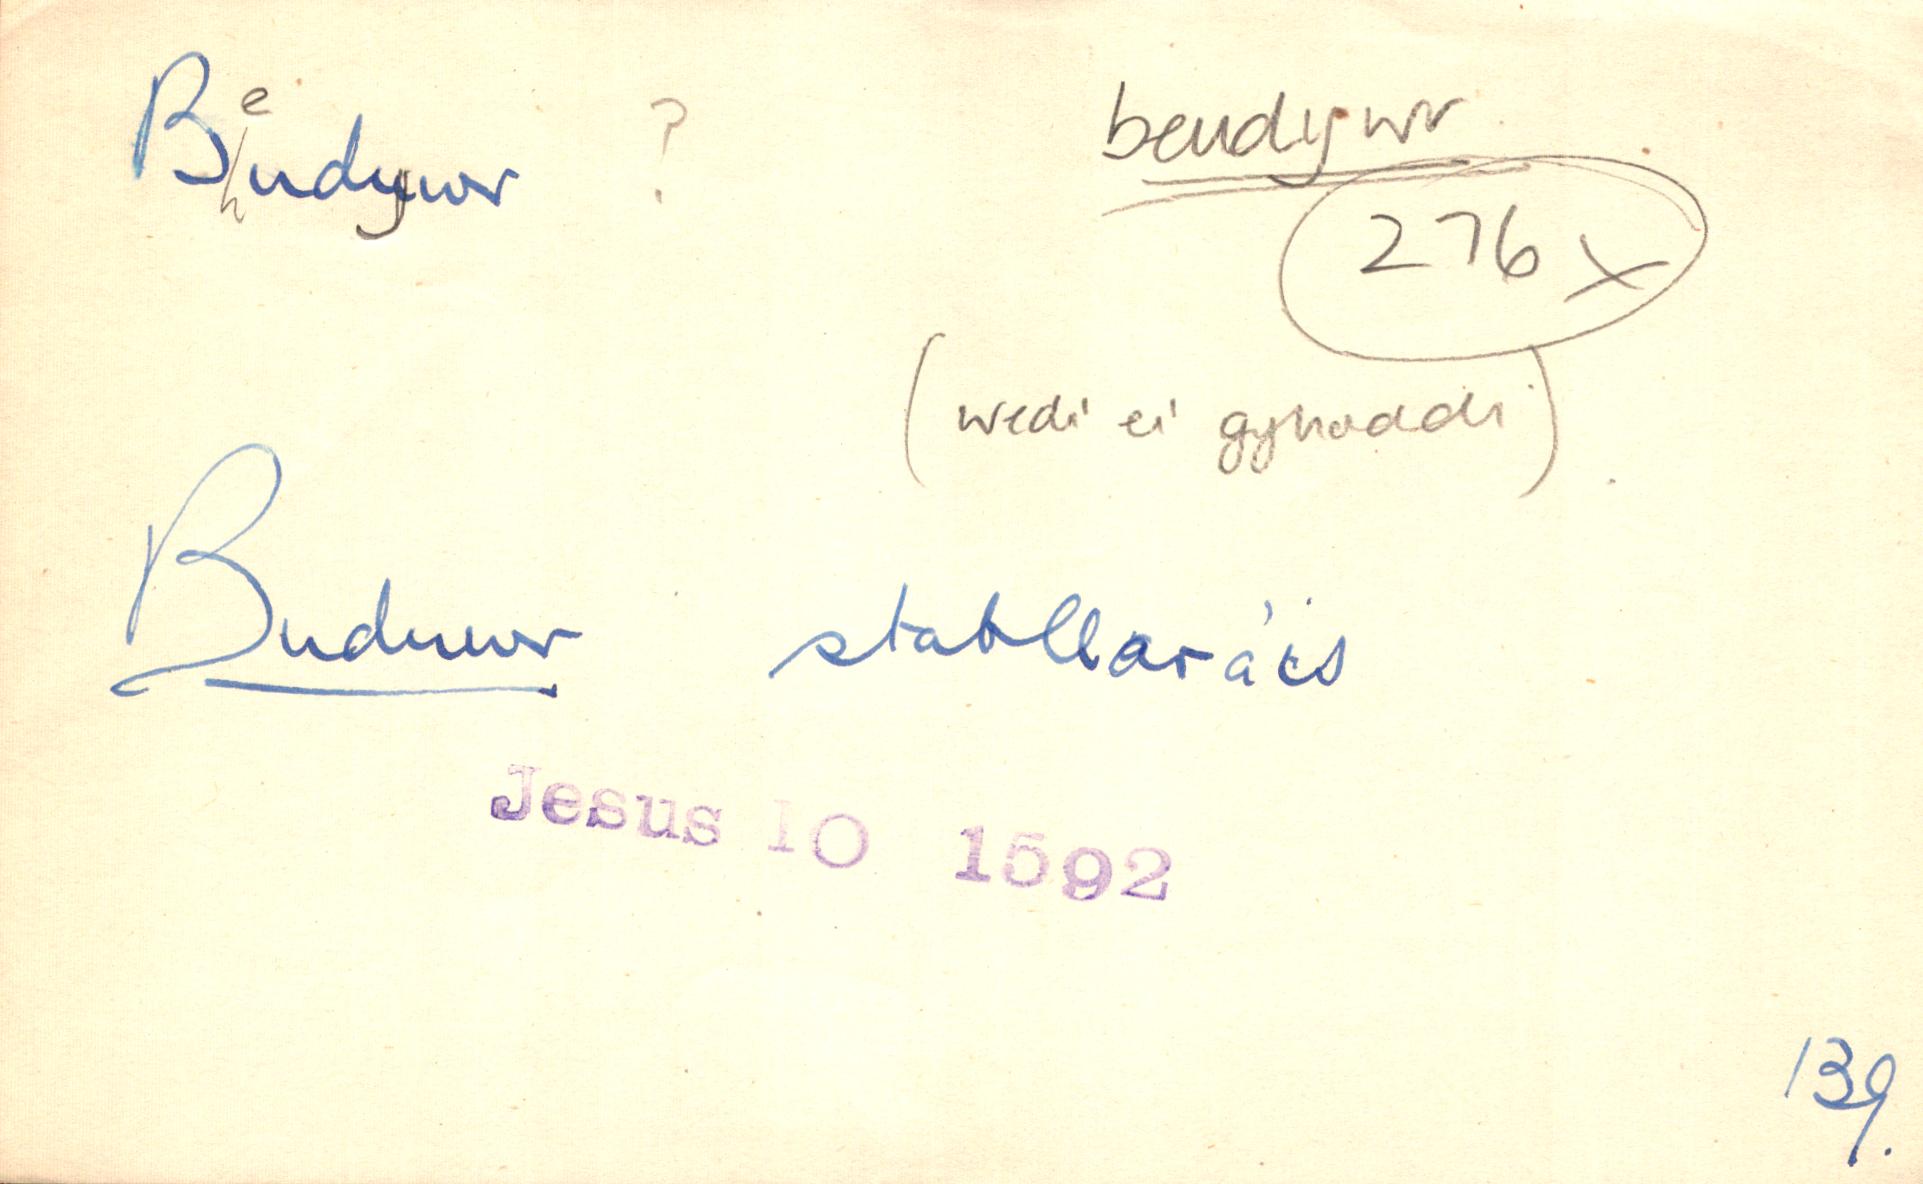 Beudywr ? beudywr
276 x
(wedi ei gyhoeddi)
Buduwr stabllarács
Jesus 10 1592
139.